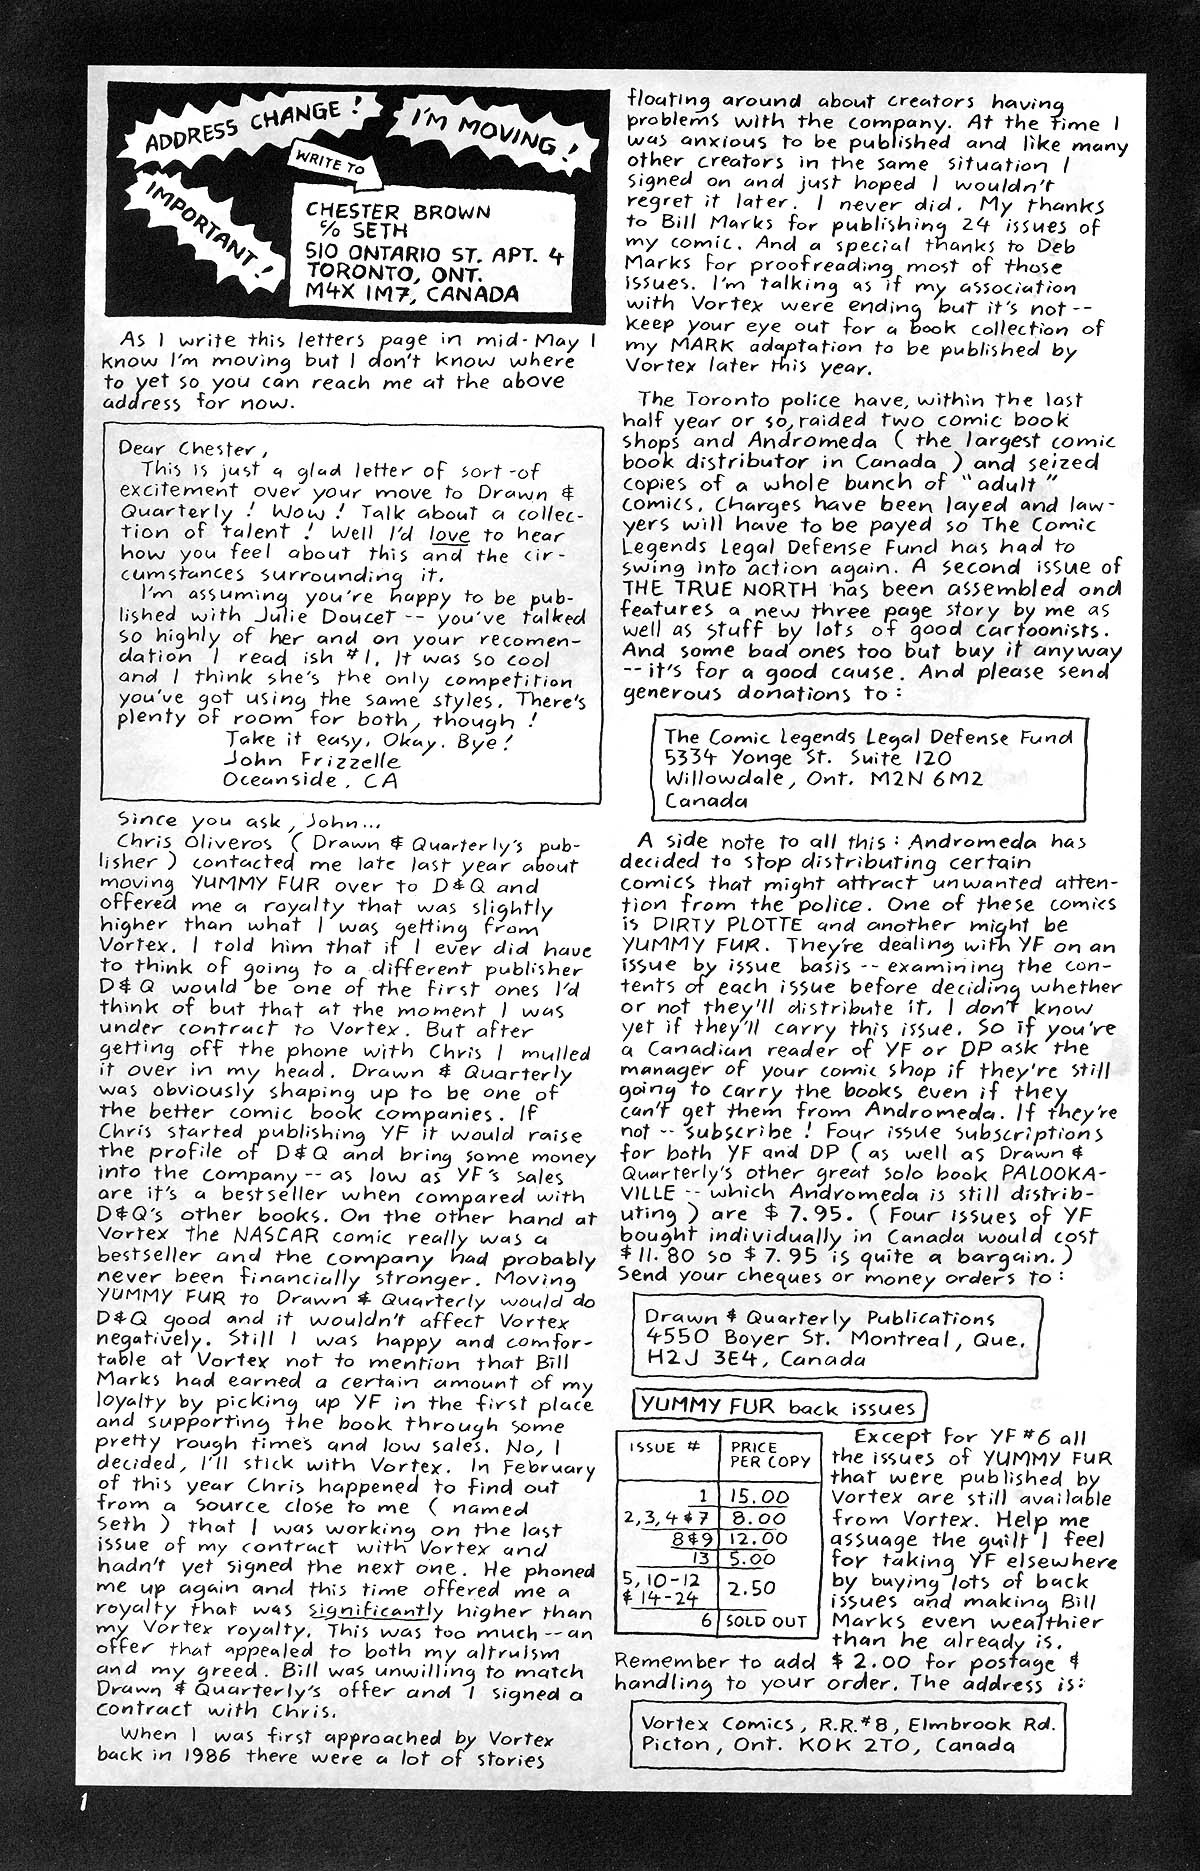 ADDRESS CHANGE!
I'M MOVING!
WRITE TO
IMPORTANT!
CHESTER BROWN
c/o SETH
510 ONTARIO ST. APT. 4
TORONTO, ONT.
M4X 1M7, CANADA
As I write this letters page in mid-May I
know I'm moving but I don't know where
to yet so you can reach me at the above
address for now.
Dear Chester,
This is just a glad letter of sort-of
excitement over your move to Drawn &
Quarterly! Wow! Talk about a collec-
tion of talent! Well I'd love to hear
how you feel about this and the cir-
cumstances surrounding it.
I'm assuming you're happy to be pub-
lished with Julie Doucet -- you've talked
so highly of her and on your recomen-
dation I read ish #1. It was so cool
and I think she's the only competition
you've got using the same styles. There's
plenty of room for both, though!
Take it easy. Okay. Bye!
John Frizzelle
Oceanside, CA
Since you ask, John...
Chris Oliveros (Drawn & Quarterly's pub-
lisher) contacted me late last year about
moving YUMMY FUR over to D&Q and
offered me a royalty that was slightly
higher than what I was getting from
Vortex. I told him that if I ever did have
to think of going to a different publisher
D&Q would be one of the first ones I'd
think of but that at the moment I was
under contract to Vortex. But after
getting off the phone with Chris I mulled
it over in my head. Drawn & Quarterly
was obviously shaping up to be one of
the better comic book companies. If
Chris started publishing YF it would raise
the profile of D&Q and bring some money
into the company -- as low as YF's sales
are it's a bestseller when compared with
D&Q's other books. On the other hand at
Vortex the NASCAR comic really was a
bestseller and the company had probably
never been financially stronger. Moving
YUMMY FUR to Drawn & Quarterly would do
D&Q good and it wouldn't affect Vortex
negatively. Still I was happy and comfor-
table at Vortex not to mention that Bill
Marks had earned a certain amount of my
loyalty by picking up YF in the first place
and supporting the book through some
pretty rough times and low sales. No, I
decided, I'll stick with Vortex. In February
of this year Chris happened to find out
from a source close to me (named
Seth) that I was working on the last
issue of my contract with Vortex and
hadn't yet signed the next one. He phoned
me up again and this time offered me a
royalty that was significantly higher than
my Vortex royalty. This was too much -- an
offer that appealed to both my altruism
and my greed. Bill was unwilling to match
Drawn & Quarterly's offer and I signed a
contract with Chris.
When I was first approached by Vortex
back in 1986 there were a lot of stories
floating around about creators having
problems with the company. At the time I
was anxious to be published and like many
other creators in the same situation I
signed on and just hoped I wouldn't
regret it later. I never did. My thanks
to Bill Marks for publishing 24 issues of
my comic. And a special thanks to Deb
Marks for proofreading most of those
issues. I'm talking as if my association
with Vortex were ending but it's not --
keep your eye out for a book collection of
my MARK adaptation to be published by
Vortex later this year.
The Toronto police have, within the last
half year or so, raided two comic book
shops and Andromeda (the largest comic
book distributor in Canada) and seized
copies of a whole bunch of "adult"
comics. Charges have been layed and law-
yers will have to be payed so The Comic
Legends Legal Defense Fund has had to
swing into action again. A second issue of
THE TRUE NORTH has been assembled and
features a new three page story by me as
well as stuff by lots of good cartoonists.
And some bad ones too but buy it anyway
-- it's for a good cause. And please send
generous donations to:
The Comic Legends Legal Defense Fund
5334 Yonge St. Suite 120
Willowdale, Ont. M2N 6M2
Canada
A side note to all this: Andromeda has
decided to stop distributing certain
comics that might attract unwanted atten-
tion from the police. One of these comics
is DIRTY PLOTTE and another might be
YUMMY FUR. They're dealing with YF on an
issue by issue basis -- examining the con-
tents of each issue before deciding whether
or not they'll distribute it. I don't know
yet if they'll carry this issue. So if you're
a Canadian reader of YF or DP ask the
manager of your comic shop if they're still
going to carry the books even if they
can't get them from Andromeda. If they're
not -- subscribe! Four issue subscriptions
for both YF and DP (as well as Drawn &
Quarterly's other great solo book PALOOKA-
VILLE -- which Andromeda is still distrib-
uting) are $7.95. (Four issues of YF
bought individually in Canada would cost
$11.80 so $7.95 is quite a bargain.)
Send your cheques or money orders to:
Drawn & Quarterly Publications
4550 Boyer St. Montreal, Que.
H2J 3E4, Canada
YUMMY FUR back issues
ISSUE # PRICE PER COPY
1 15.00
2,3,4&7 8.00
8&9 12.00
13 5.00
5,10-12 & 14-24 2.50
6 SOLD OUT
Except for YF #6 all
the issues of YUMMY FUR
that were published by
Vortex are still available
from Vortex. Help me
assuage the guilt I feel
for taking YF elsewhere
by buying lots of back
issues and making Bill
Marks even wealthier
than he already is.
Remember to add $2.00 for postage &
handling to your order. The address is:
Vortex Comics, R.R.#8, Elmbrook Rd.
Picton, Ont. K0K 2T0, Canada
1